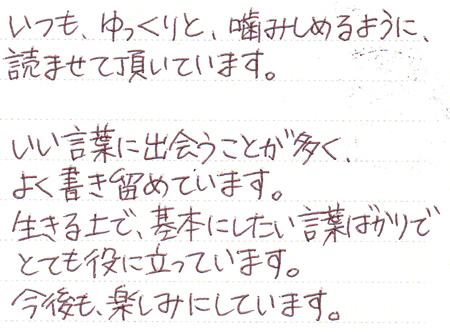 いつも、ゆっくりと、噛みしめるように、
読ませて頂いています。
いい言葉に出会うことが多く、
よく書き留めています。
生きる上で、基本にしたい言葉ばかりで
とても役に立っています。
今後も、楽しみにしています。